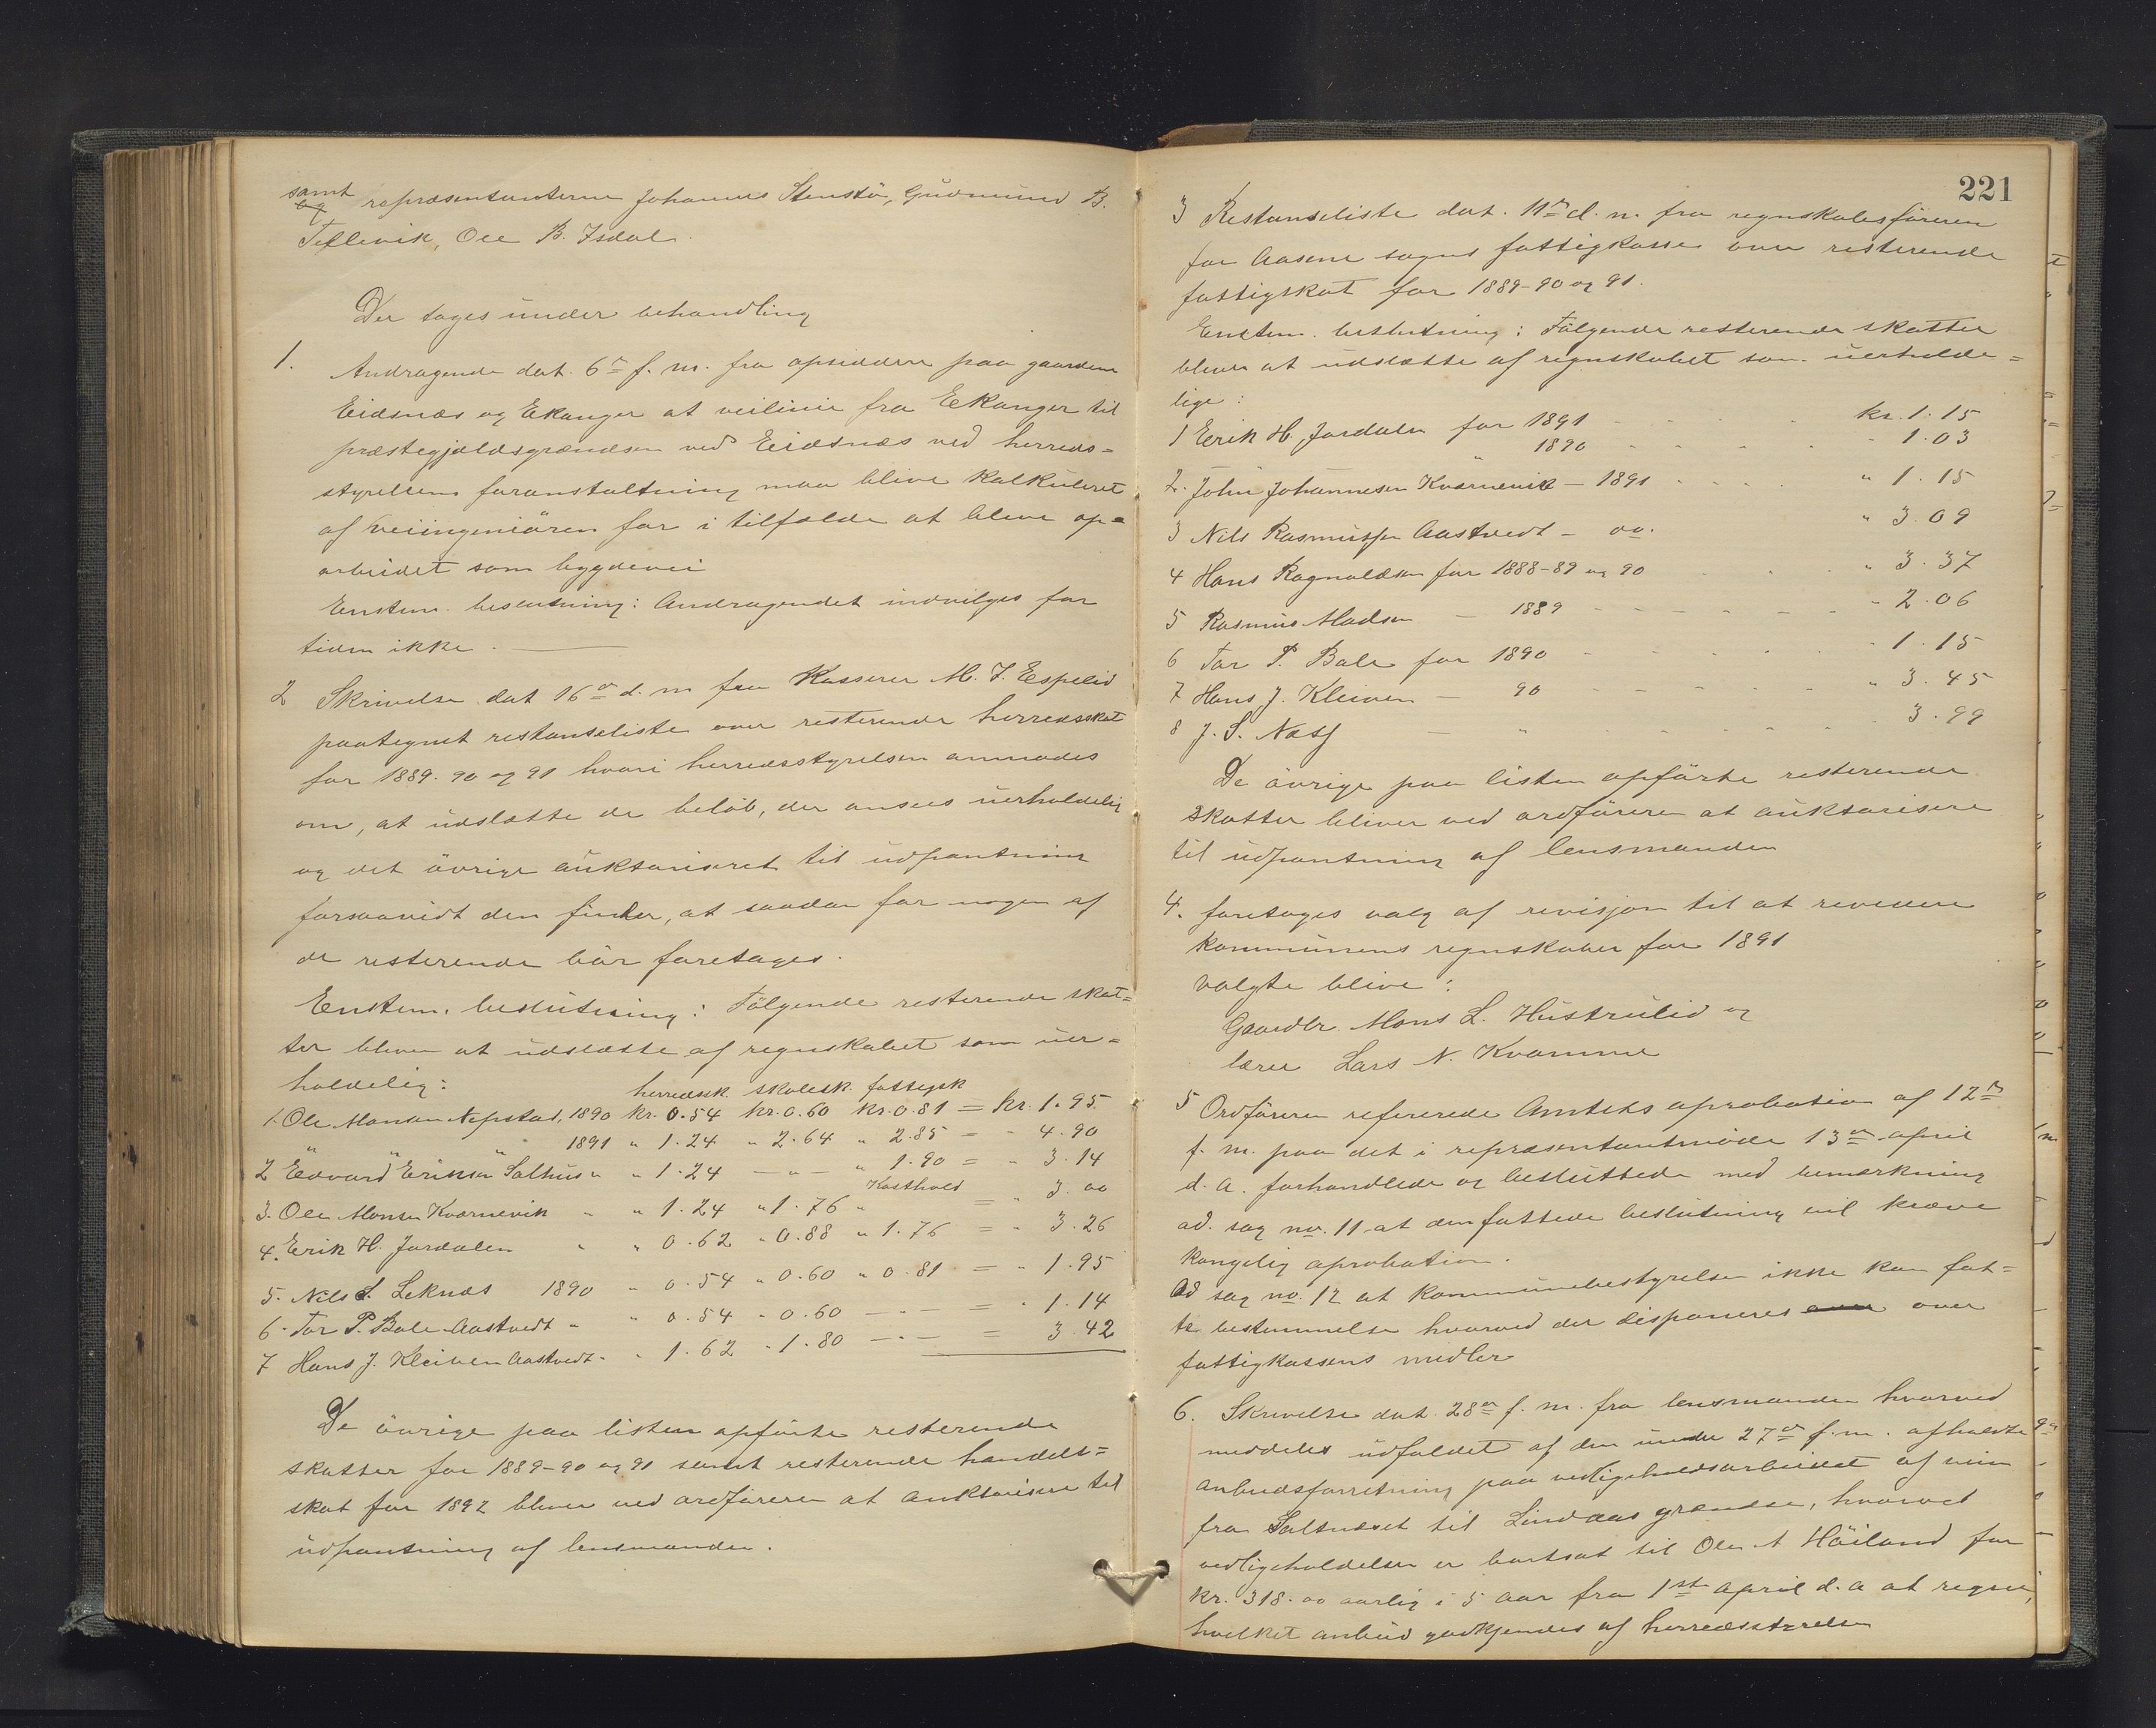 samt
og repræsentanterne Johannes Stenstö, Gudmund B.
Tellevik, Ole B. Isdal.
Der toges under behandling
1. Andragende dat. 6te f. m. fra opsiddere paa gaardene
Eidsnæs og Ekanger at veilinie fra Ekanger til
præstegjældsgrændsen ved Eidsnæs ved herreds=
styrelsens foranstaltning maa blive kalkuleret
af veiingeniören for i tilfælde at blive op=
arbeidet som bygdevei
Enstem. beslutning: Andragendet indvilges for
tiden ikke.
2 Skrivelse dat 16de d. m fra Kasserer M. J. Espelid
paategnet restanseliste over resterende herredsskat
for 1889. 90 og 91 hvori herredsstyrelsen anmodes
om, at udslætte de belöb, der ansees uerholdelig
og det övrige auktoriseret til udpantning
forsaavidt den finder, at saadan for nogen af
de resterende bör foretages.
Enstem. beslutning: Fölgende resterende skat=
ter bliver at udslætte af regnskabet som uer=
holdelig:
herredssk. skolesk. fattigsk
1. Ole Monsen Nepstad, 1890 kr. 0.54 kr. 0.60 kr. 0.81 = kr. 1.95
" " " 1891 " 1.24 " 2.64 " 2.85 = " 4.90
2 Edvard Eriksen Salhus " " 1.24 — " — " 1.90 = " 3.14
Kosthold
3. Ole Monsen Kvernevik " " 1.24 " 1.76 " = " 3.00
4. Erik H. Jordalen " " 0.62 " 0.88 " 1.76 = " 3.26
5. Nils S. Leknæs 1890 " 0.54 " 0.60 " 0.81 = " 1.95
6. Tor P. Bale Aastvedt " " 0.54 " 0.60 — " — = " 1.14
7 Hans J. Kleiven Aastvedt " " 1.62 " 1.80 — " — = 3.42
De övrige paa listen opförte resterende
skatter for 1889-90 og 91 samt resterende handels=
skat for 1892 bliver ved ordföreren at auktorisere til
udpantning af lensmanden.
221
3 Restanseliste dat. 11te d. m. fra regnskabsföreren
for Aasene sogns fattigkasse over resterende
fattigskat for 1889-90 og 91.
Enstem. beslutning: Fölgende resterende skatter
bliver at udslætte af regnskabet som uerholde=
lige:
1 Erik H. Jordalen for 1891 kr. 1.15
" 1890 " 1.03
2. John Johannesen Kvernevik — 1891 " 1.15
3 Nils Rasmussen Aastvedt — do. " 3.09
4 Hans Ragnoldsen for 1888-89 og 90 " 3.37
5 Rasmus Madsen — 1889 " 2.06
6 Tor P. Bale for 1890 " 1.15
7 Hans J. Kleiven — 90 " 3.45
8 J. S. Næss — " 3.99
De övrige paa listen opförte resterende
skatter bliver ved ordföreren at auktorisere
til udpantning af lensmanden
4. foretoges valg af revisjon til at revidere
kommunens regnskaber for 1891
valgte blive:
Gaardbr. Mons L. Hustrulid og
lærer Lars N. Kvamme
5 Ordföreren refererede Amtets aprobation af 12te
f. m. paa det i repræsentantmöde 13de april
d. a. forhandlede og besluttede med bemærkning
ad. sag no. 11 at den fattede beslutning vil kræve
kongelig aprobation.
Ad sag no. 12 at kommunebestyrelsen ikke kan fat=
te bestemmelse hvorved der disponeres over over
fattigkassens midler
6. Skrivelse dat. 28de f. m. fra lensmanden hvorved
meddeles udfaldet af den under 27de f. m. afholdte
anbudsforretning paa vedligeholdsarbeidet af veien
fra Saltnæset til Lindaas grændse, hvorved
vedligeholdelsen er bortsat til Ole A Höiland for
kr. 318.00 aarlig i 5 aar fra 1ste april d. a at regne,
hvilket anbud godkjendes af herredsstyrelsen